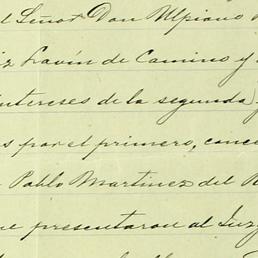 l Señor Don Ulpiano
iz Lavín de Camino y
intereses de la segunda,
s por el primero, conce
Pablo Martinez del R
ue presentaron al Juzg